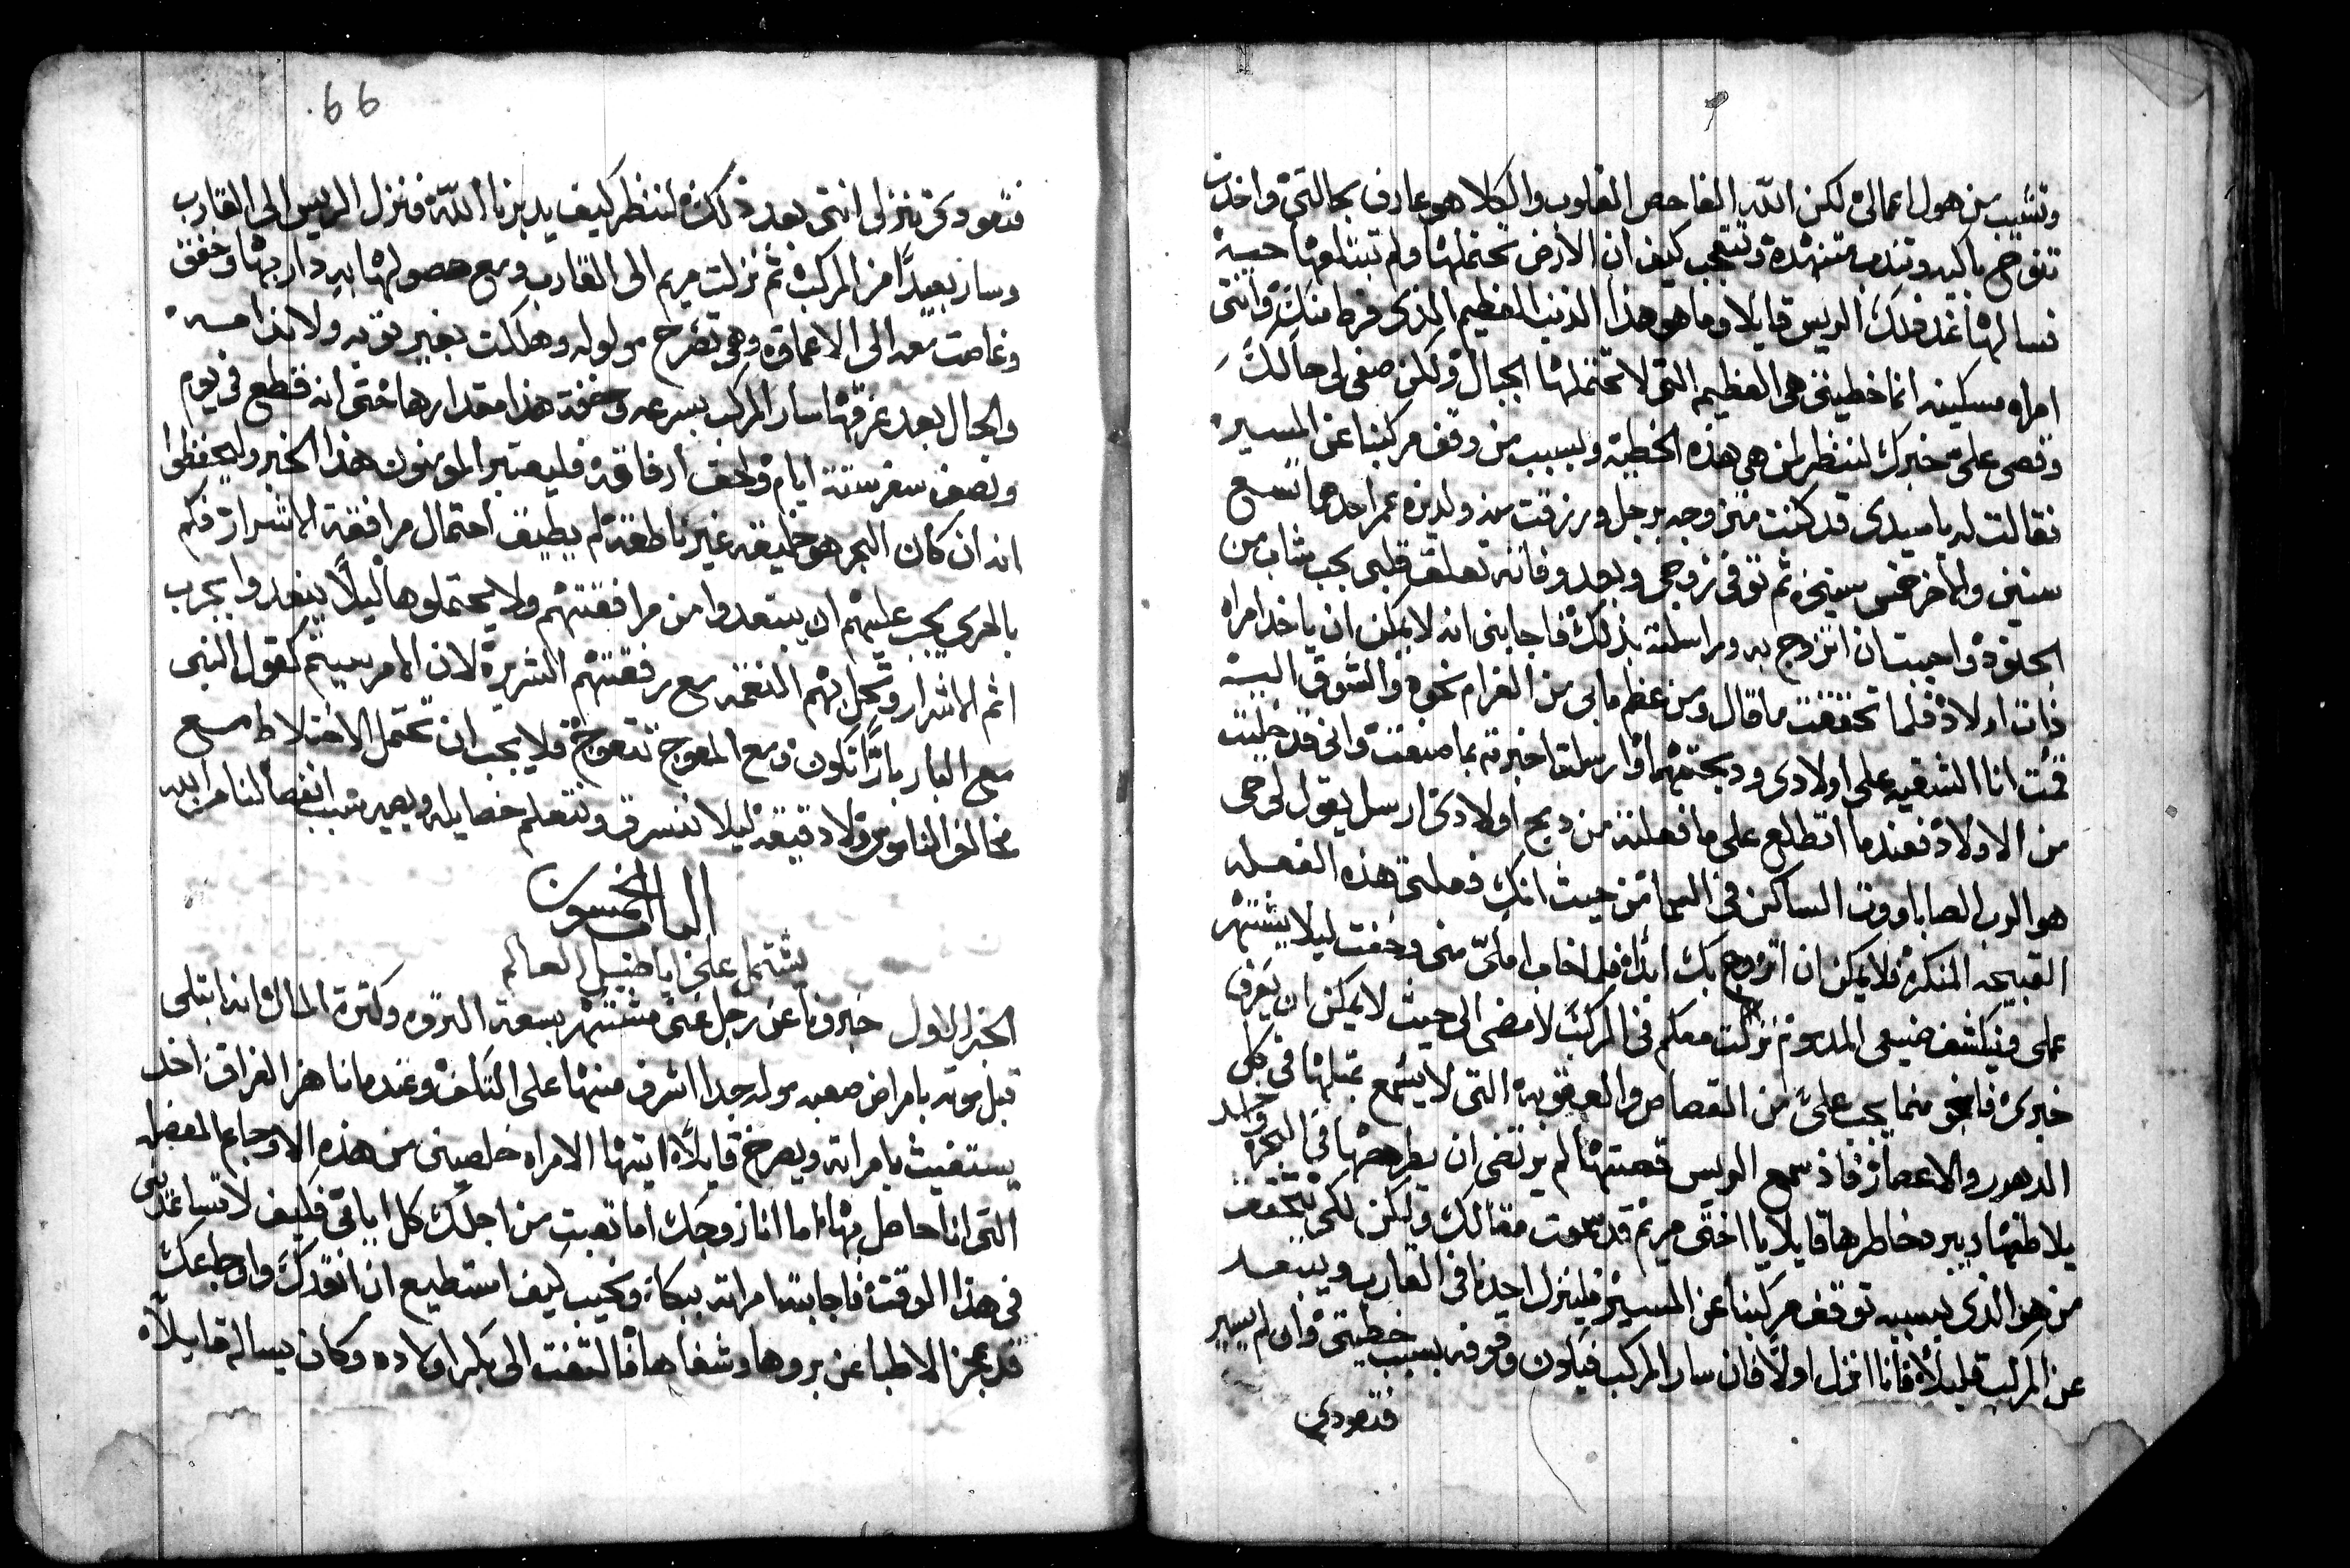 وتشيب من هول اعمالي لكن الله الفاحص القلوب والكلا هو عارف بحالتي واخذت
تنوح باكيه وتندب متنهده وتتعجب كيف ان الارض تحتملها ولم تبتلعها حيه
فسالها عند ذلك الريس قايلا وما هو هذا الذنب العظيم الذي فرط منك وانتي
امراه مسكينه انما خطيتي هي العظيم التي لا تحتملها الجبال ولكن صفي لي حالك
وقصي علي خبرك لننظر لمن هي هذه الخطية وبسبب من وقف مركبنا عن المسير
فقالت له يا سيدي قد كنت متزوجه برجل ورزقت منه ولدين عمر احدهما تسع
سنين والاخر خمس سنين ثم توفى زوجي وبعد وفاته تعلق قلبي بحب شاب من
الجنود واحببت ان اتزوج به وراسلته بذلك فاجابني انه لا يمكن ان ياخذ امراه
ذات اولاد فلما تحققت ما قال ومن عظم ما بي من الغرام نحوه والشوق اليه
قمت انا الشقيه على اولادي ودبحتهما وارسلت اخبرته بما صنعت واني قد خليت
من الاولاد فعندما اتطلع على ما فعلته من دبح اولادي ارسل يقول لي حي
هو الرب الصاباووت الساكن في السما من حيث انك فعلتي هذه الفعله
القبيحه المنكره فلا يمكن ان اتزوج بك ابدا فلما خاب املي مني وخفت ليلا يشتهر
عملي وينكشف صنيعي المذموم نزلت معكم في المركب لامضي الى حيث لا يمكن ان يعرف
خبري فانجو مما يجب علي من القصاص والعقوبه التي لا يسمع بمثلها في كل
الدهور والاعصار فاذ سمع الريس قصتها لم يرتضي ان يطرحها في البحر واخد
يلاطفها ويبرد خاطرها قايلا يا اختي مريم قد سمعت مقالك ولكن لكي نتحقق
من هو الذي بسببه توقف مركبنا عن المسير فلينزل احدنا في القارب ويبعد
عن المركب قليلا فانا انزل اولا فان سار المركب فيكون وقوفه بسبب خطيتي وان لم يسير
فتعودي
66
فتعود تنزلي انتي بعد ذلك لننظر كيف يدبرنا الله فنزل الريس الى القارب
وسار بعيدا من المركب ثم نزلت مريم الى القارب ومع حصولها به دار بها وخفق
وغاصت معه الى الاعماق وهي تصرخ مولوله وهلكت بغير توبه ولا ندامه
والحال بعد غرقها سار المركب بسرعه وخفة هذا مقدارها حتى انه قطع في يوم
ونصف سفر ستة ايام ولحق ارفاقه فليعتبر المومنون هذا الخبر وليحفظوا
انه ان كان البحر هو خليقه غير ناطقة لم يطيق احتمال مرافقة الاشرار فكم
بالحري يجب عليهم ان يبتعدوا من مرافقتهم ولا يحتملوها ليلا يبعدوا بجرب
اثم الاشرار وتحل بهم النقمه مع رفقتهم الشريرة لان الامر سيتم كقول النبي
مع البار بارا تكون ومع المعوج تتعوج فلا يجب ان نحتمل الاختلاط مع
مخالف الناموس ولا دقيقه ليلا ننسرق ونتعلم خصايله ويصير سبب انفصالنا من الله
الباب الخمسون
يشتمل على اباطيل العالم
الخبر الاول خبرونا عن رجل غني مشتهر بسعة الثروه وكثرة المال انه ابتلى
قبل موته بامراض صعبه مولمه جدا اشرف منها على التلف وعندما ناهز الفراق اخد
يستغيث بامراته ويصرخ قايلا ايتها الامراه خلصيني من هذه الاوجاع المعضله
التي انا حاصل بها اما انا زوجك اما تعبت من اجلك كل ايامي فكيف لا تساعديني
في هذا الوقت فاجابته امراته ببكاء ونحيب كيف استطيع ان انقدك واوجاعك
قد عجز الاطبا عن بروها وشفاها فالتفت الى بكر اولاده وكان يساله قايلا